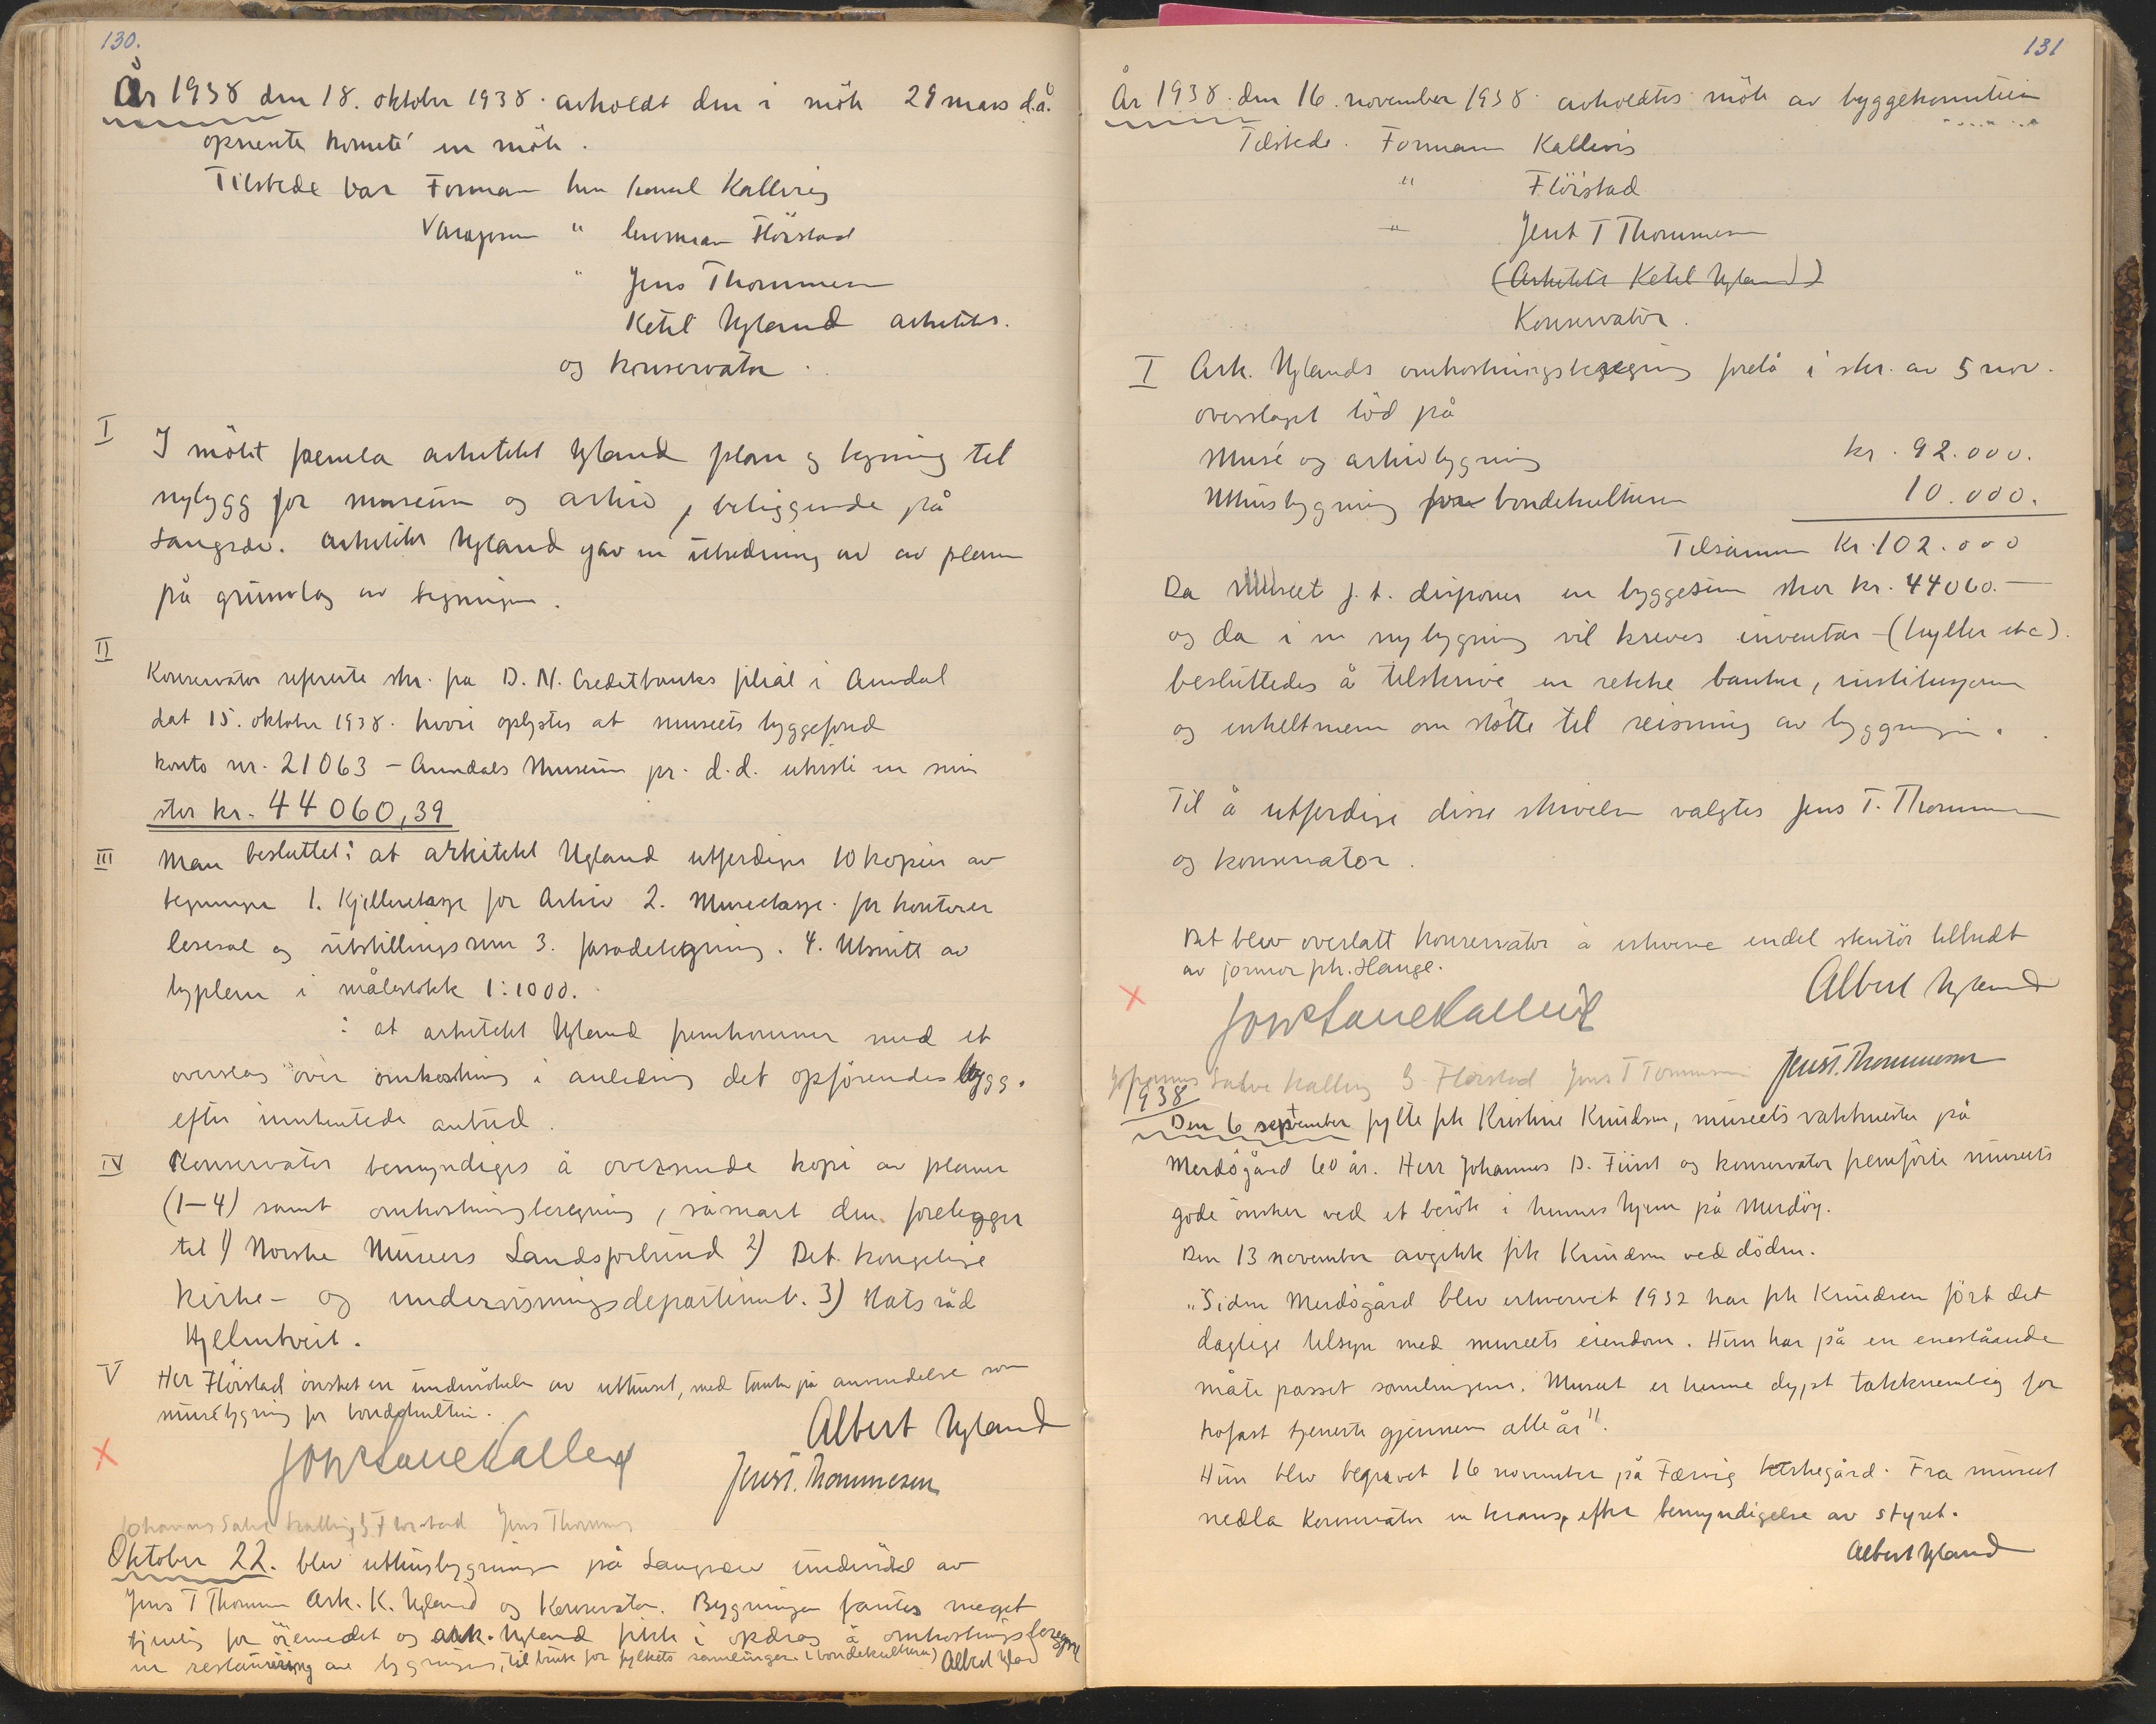 130.
År 1938 den 18. oktober 1938. avholdt den i möte 29 mars d.å.
opnevnte komité en möte.
Tilstede var Formann herr konsul Kallevig
Varaform " lensmann Flörstad
" Jens Thommesen
Ketil Ugland arkitekt.
og konservator.
I I mötet fremla arkitekt Ugland plan og tegning til
nybygg for museum og arkiv, beliggende på
Langsæ. Arkitekt Ugland gav en utredning av av planen
på grunnlag av tegningen.
II
Konservator refererte skr. fra D. N. Creditbanks filial i Arendal
dat 15. oktober 1938. hvori oplystes at museets byggefond
konto nr. 21063 - Arendals Museum pr. d.d. utviste en sum
stor kr. 44 060,39
III Man besluttet: at arkitekt Ugland utferdiger 10 kopier av
tegninger 1. Kjelleretasje for Arkiv 2. Museetasje for kontorer
lesesal og utstillingsrum 3. fasadetegning. 4. Utsnitt av
byplan i målestokk 1:1000.
: at arkitekt Ugland fremkommer med et
overslag over omkostning i anledning det opförendes bygg.
efter innhentede anbud.
IV Konservator bemyndiges å oversende kopi av planer
(1-4) samt omkostningsberegning, såsnart den foreligger
til 1) Norske Museers Landsforbund 2) Det kongelige
kirke- og undervisningsdepartement. 3) Statsråd
Hjelmtveit.
V Her Flörstad önsket en undersökelse av uthuset, med tanke på anvendelse som
musébygning for bondekultur.
Albert Ugland
Joh Salve Kallevig
Jens T. Thommesen
Johannes Salve Kallevig S Florstad Jens Thommesen
Oktober 22. blev uthusbygningen på Langsæ undersökt av
Jens T Thommesen Ark. K. Ugland og Konservator. Bygningen fantes meget
tjenlig for öiemedet og ark. Ugland fikk i opdrag å omkostningsberegne
en restaurering av bygningen, til bruk for fylkets samlinger. (bondekulturen) Albert Ugland
131
År 1938. den 16. november 1938 avholdtes möte av byggekomitéen
Tilstede. Formann Kallevig
" Flöistad
" Jens T Thommesen
(Arkitekt Ketil Ugland)
Konservator.
I Ark. Uglands omkostningsberegning forelå i skr. av 5 nov.
overslaget löd på
Musé og arkivbygning kr. 92.000.
Uthusbygning for bondekulturen 10.000.
Tilsammen Kr. 102.000
Da Museet f. t. disponer en byggesum stor kr. 44060.-
og da i en nybygning vil kreves inventar - (hyller etc).
besluttedes å tilskrive en rekke banker, institusjoner
og enkeltmenn om stötte til reisning av byggningen.
Til å utferdige disse skrivelser valgtes Jens T. Thommesen
og konservator.
Det blev overlatt konservator å erhverve endel skutör tilbudt
av jormor frk. Hauge.
Albert Ugland
Joh Salve Kallevig
Jens T. Thommesen
Johannes Salve Kallevig S Florstad Jens T Tommesen
1938
Den 6 september fylte frk Kristine Knudsen, museets vaktmester på
Merdögård 60 år. Herr Johannes D. Fürst og konservator fremförte museets
gode önsker ved et besök i hennes hjem på Merdöy.
Den 13 november avgikk frk Knudsen ved döden.
"Siden Merdögård blev erhvervet 1932 har frk Knudsen fört det
daglige tilsyn med museets eiendom. Hun har på en enestående
måte passet samlingene. Museet er henne dypt takknemlig for
trofast tjeneste gjennem alle år".
Hun blev begravet 16 november på Færvig kirkegård. Fra museet
nedla Konservator en krans, efter bemyndigelse av styret.
Albert Ugland